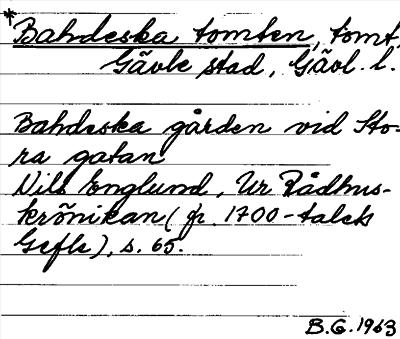 *Bahdeska tomten, tomt,
Gävle stad, Gävl. l.
Bahdeska gården vid Sto-
ra gatan
Nils Englund, Ur Rådhus-
krönikan (fr. 1700-talets
Gefle), s. 65.
B.G. 1963